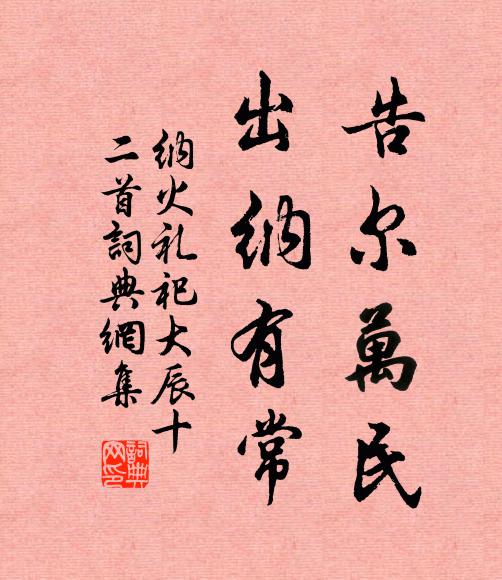 告尔萬民
出纳有常
纳火礼祀大辰十
二首詞典網集
詞典
网印